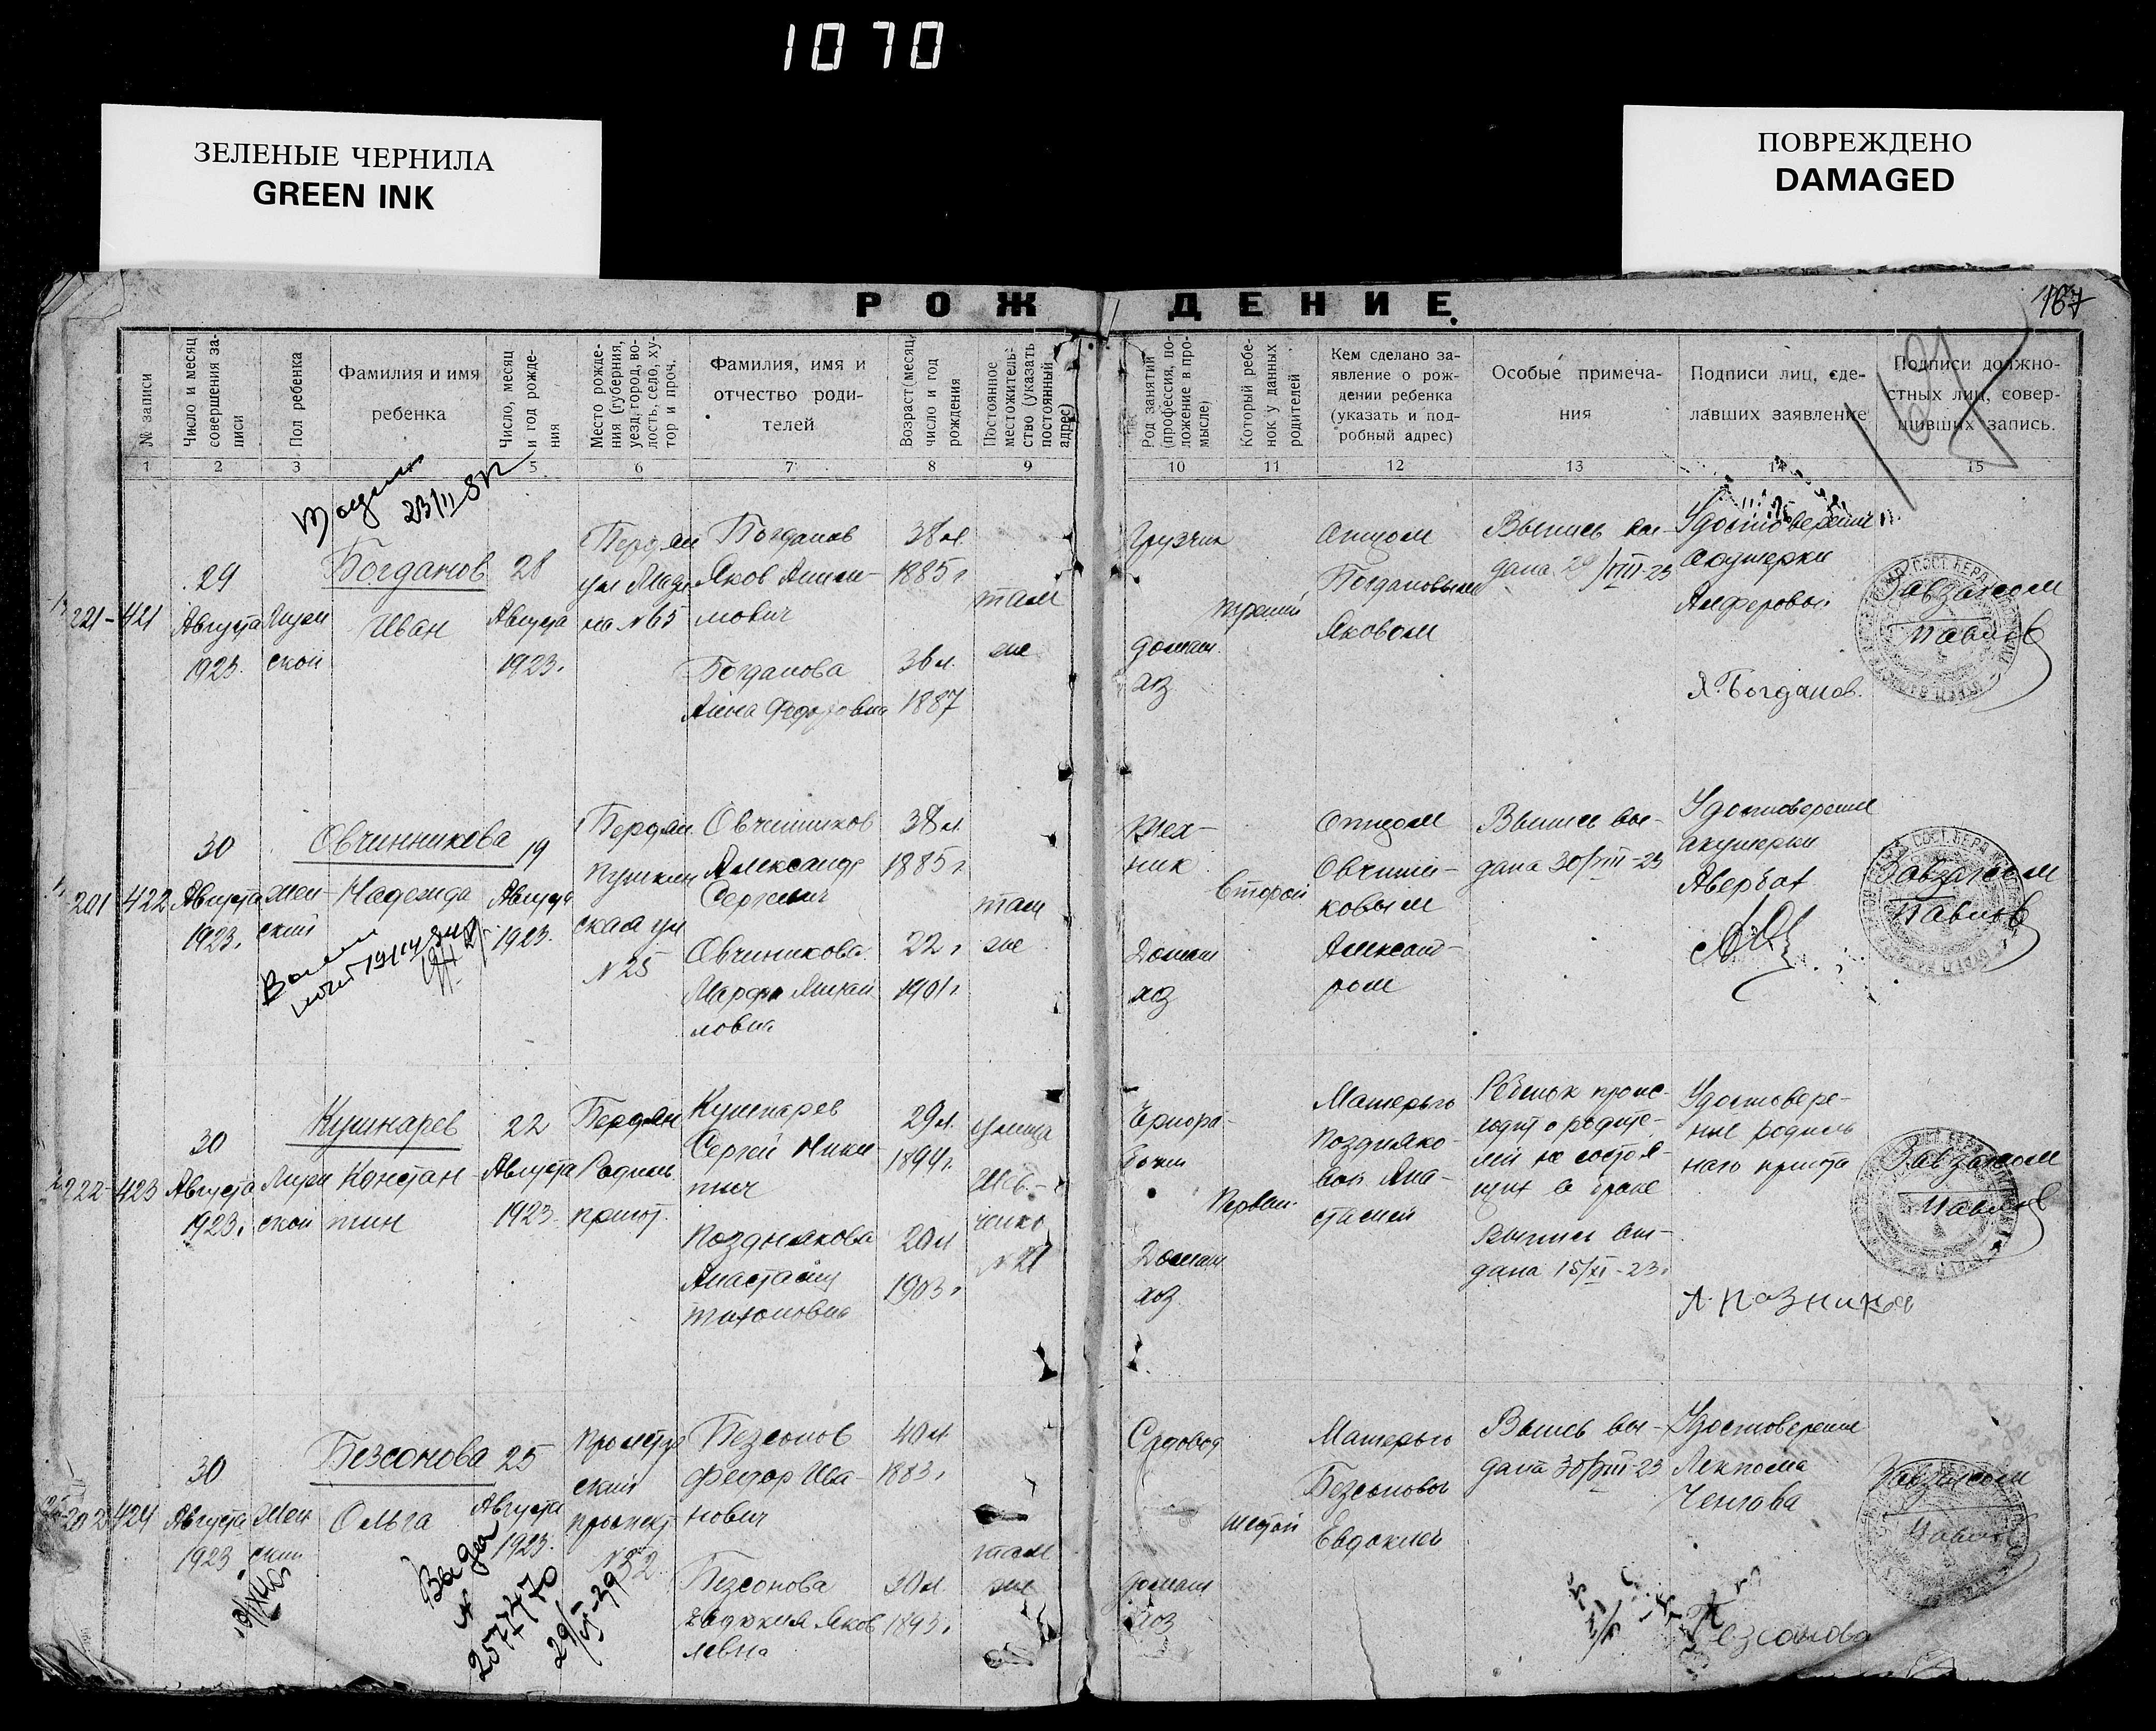 1070
ЗЕЛЕНЫЕ ЧЕРНИЛА
GREEN INK
ПОВРЕЖДЕНО
DAMAGED
РОЖДЕНИЕ.
167
№ записи
Число и месяц совершения записи
Пол ребенка
Фамилия и имя
ребенка
Число, месяц и год рождения
Место рождения (губерния, уезд, город, волость, село, хутор и проч.
Фамилия, имя и
отчество роди-
телей
Возраст (месяц, число и год рождения
Постоянное местожительство (указать постоянный адрес)
Род занятий (профессия, положение в промысле)
Который ребенок у данных родителей
Кем сделано за-
явление о рож-
дении ребенка
(указать и под-
робный адрес)
Особые примеча-
ния
Подписи лиц, сде-
лавших заявление
Подписи должно-
стных лиц, совер-
шивших запись.
1 2 3 5 6 7 8 9 10 11 12 13 14 15
23/II
221-421
29
Августа
1923.
Муж
ской
Богданов
Иван
28
Августа
1923.
Бердян
ул
№65
Богданов
Яков
мович
Богданова
Анна Федоровна
38 л
1885 г
36 л.
1887
там
же
Грузчик
домаш.
хоз
третий
Отцом
Богдановым
Яковом
Выпись вы-
дана 29/VIII-23
Удостоверение
Акушерки
Алферовой
Я. Богданов.
Завзагсом
Павлов
201 422
30
Августа
1923.
Жен
ский
Овчинникова
Надежда
19
Августа
1923.
Бердян
Пушкин
ская ул
№25
Овчинников
Александр
Сергеевич
Овчинникова
Марфа Михай
ловна
38 л
1885 г
22 г
1901 г
там
же
Тех-
ник
Домаш
хоз
Второй
Отцом
Овчинни-
ковым
Александ-
ром
Выпись вы-
дана 30/VIII-23
Удостоверение
акушерки
Авербах
Завзагсом
Павлов
222-423
30
Августа
1923.
Муж
ской
Кушнарев
Констан
тин
22
Августа
1923.
Бердян
Родил.
приют.
Кушнарев
Сергей Ники
тич
Позднякова
Анастасия
Тихоновна
29 л.
1894 г.
20 л
1903 г.
улица
Шев-
ченко
№21
Домаш
хоз
Первый
Матерью
Поздняко-
вой Ана-
стасией
Ребенок проис-
ходит о родите-
лей не состоя-
щих в браке
Выпись вы-
дана 15/XI-23.
Удостовере-
ние родиль
наго приюта
Завзагсом
Павлов
202 424
30
Августа
1923
Жен
ский
Безсонова
Ольга
25
Августа
1923.
Пролетар
ский
проспект
Безсонов
Федор Ива-
нович
Безсонова
Евдокия Яков
левна
40 л
1883 г
30 л
1893 г.
там
же
Садовод
домаш
хоз
шестой
Матерью
Безсоновой
Евдокией
Выпись вы-
дана 30/VIII-23
Удостоверение
Лекпома
Завзагсом
Павлов
Безсонова
Выдан
№
257770
29/VI-39